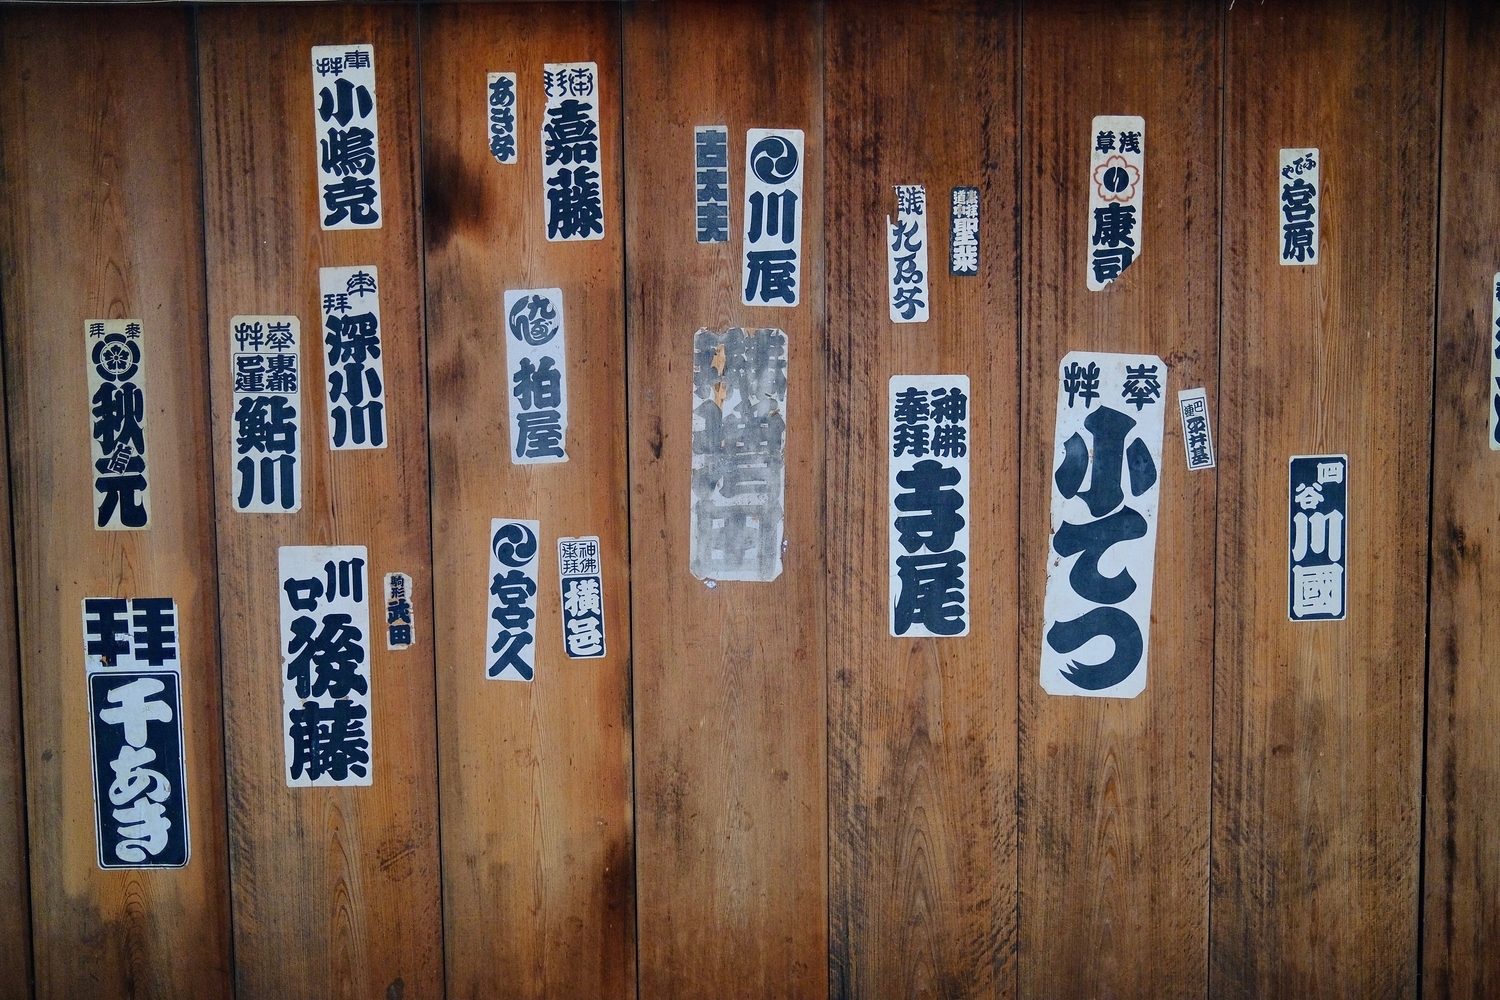 奉拝
小嶋克
奉拝
深小川
奉拝
秋元
信
奉拝
東都
巴連
鮎川
拝
千あき
川口
後藤
駒形
武田
あき若
嘉藤
柏屋
宮久
神佛
奉拝
横邑
古大夫
川辰
増田
浅草
康司
神佛
奉拝
寺尾
奉拝
小てつ
巴連
平井基
宮原
四谷
川國